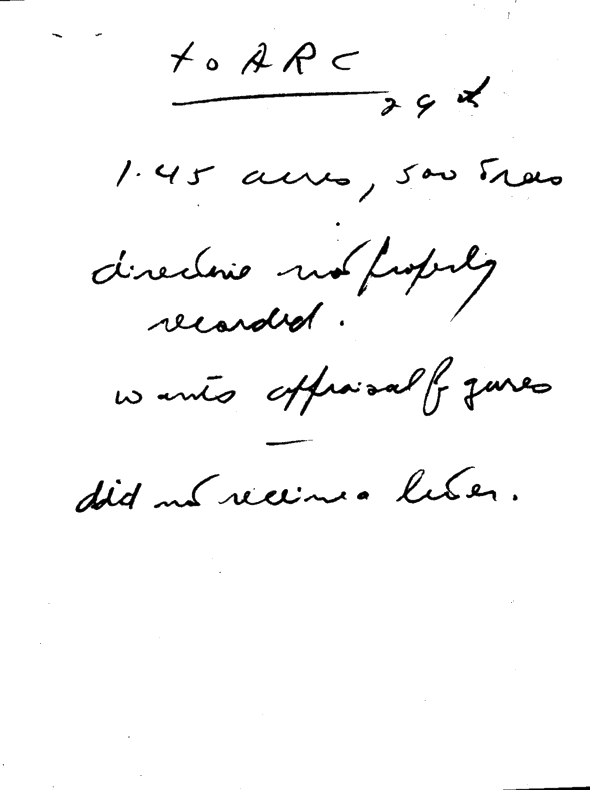 to ARC
29th
1.45 acres, 500 Trees
directive not properly
recorded.
wants appraisal figures
did not receive a letter.